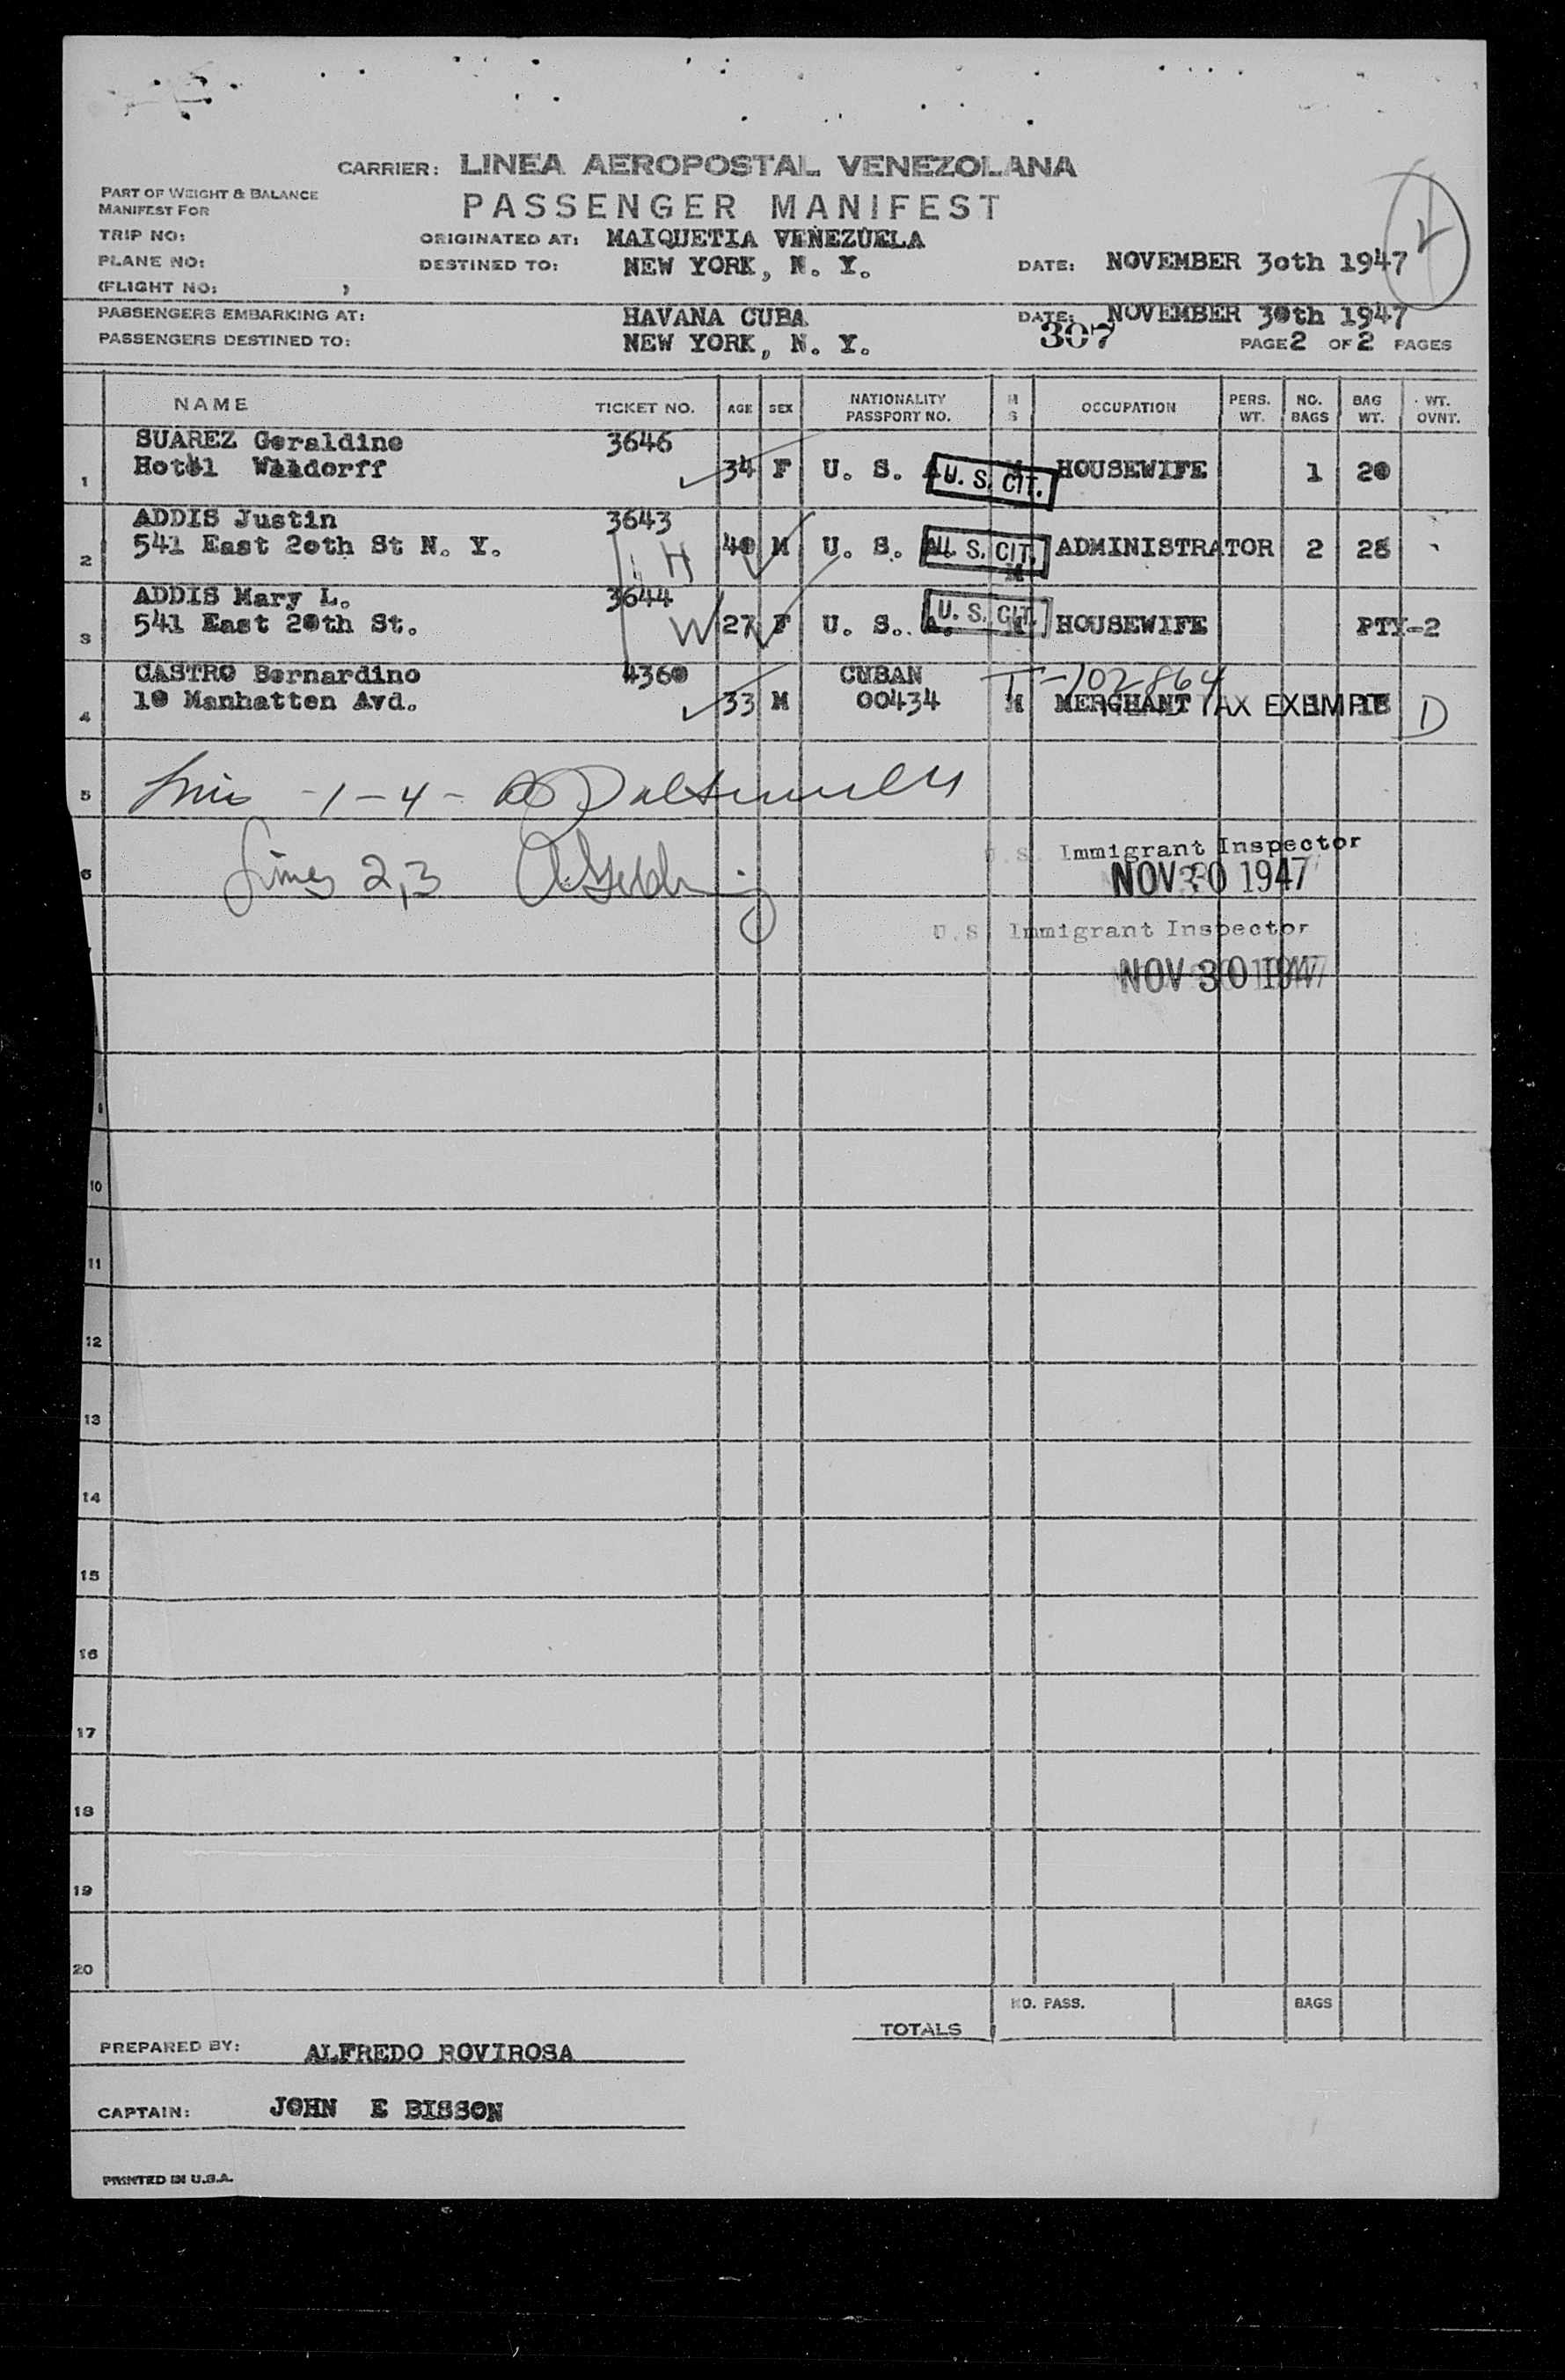 CARRIER: LINEA AEROPOSTAL VENEZOLANA
PART OF WEIGHT & BALANCE
MANIFEST FOR
PASSENGER MANIFEST
TRIP NO:
ORIGINATED AT: MAIQUETIA VENEZUELA
PLANE NO:
DESTINED TO: NEW YORK, N. Y.
DATE: NOVEMBER 3oth 1947
(FLIGHT NO: )
PASSENGERS EMBARKING AT: HAVANA CUBA
DATE: NOVEMBER 30th 1947
PASSENGERS DESTINED TO: NEW YORK, N. Y.
307
PAGE 2 OF 2 PAGES
NAME TICKET NO. AGE SEX NATIONALITY PASSPORT NO. M S OCCUPATION PERS. WT. NO. BAGS BAG WT. WT. OVNT.
SUAREZ Geraldine 3646
1 Hotel Waldorff 34 F U. S. A U. S. CIT. HOUSEWIFE 1 20
ADDIS Justin 3643
2 541 East 2oth St N. Y. H 40 M U. S. U. S. CIT. M ADMINISTRATOR 2 28
ADDIS Mary L. 3644
3 541 East 20th St. W 27 F U. S. A. U. S. CIT. HOUSEWIFE PTY-2
CASTRO Bernardino 4360 CUBAN T-702864
4 10 Manhatten Avd. 33 M 00434 M MERCHANT TAX EXEMPT D
5 -1-4-
6 Lines 2,3
U.S. Immigrant Inspector
NOV 30 1947
U.S. Immigrant Inspector
NOV 30 1947
10
11
12
13
14
15
16
17
18
19
20
TOTALS NO. PASS. BAGS
PREPARED BY: ALFREDO ROVIROSA
CAPTAIN: JOHN E BISSON
PRINTED IN U.S.A.